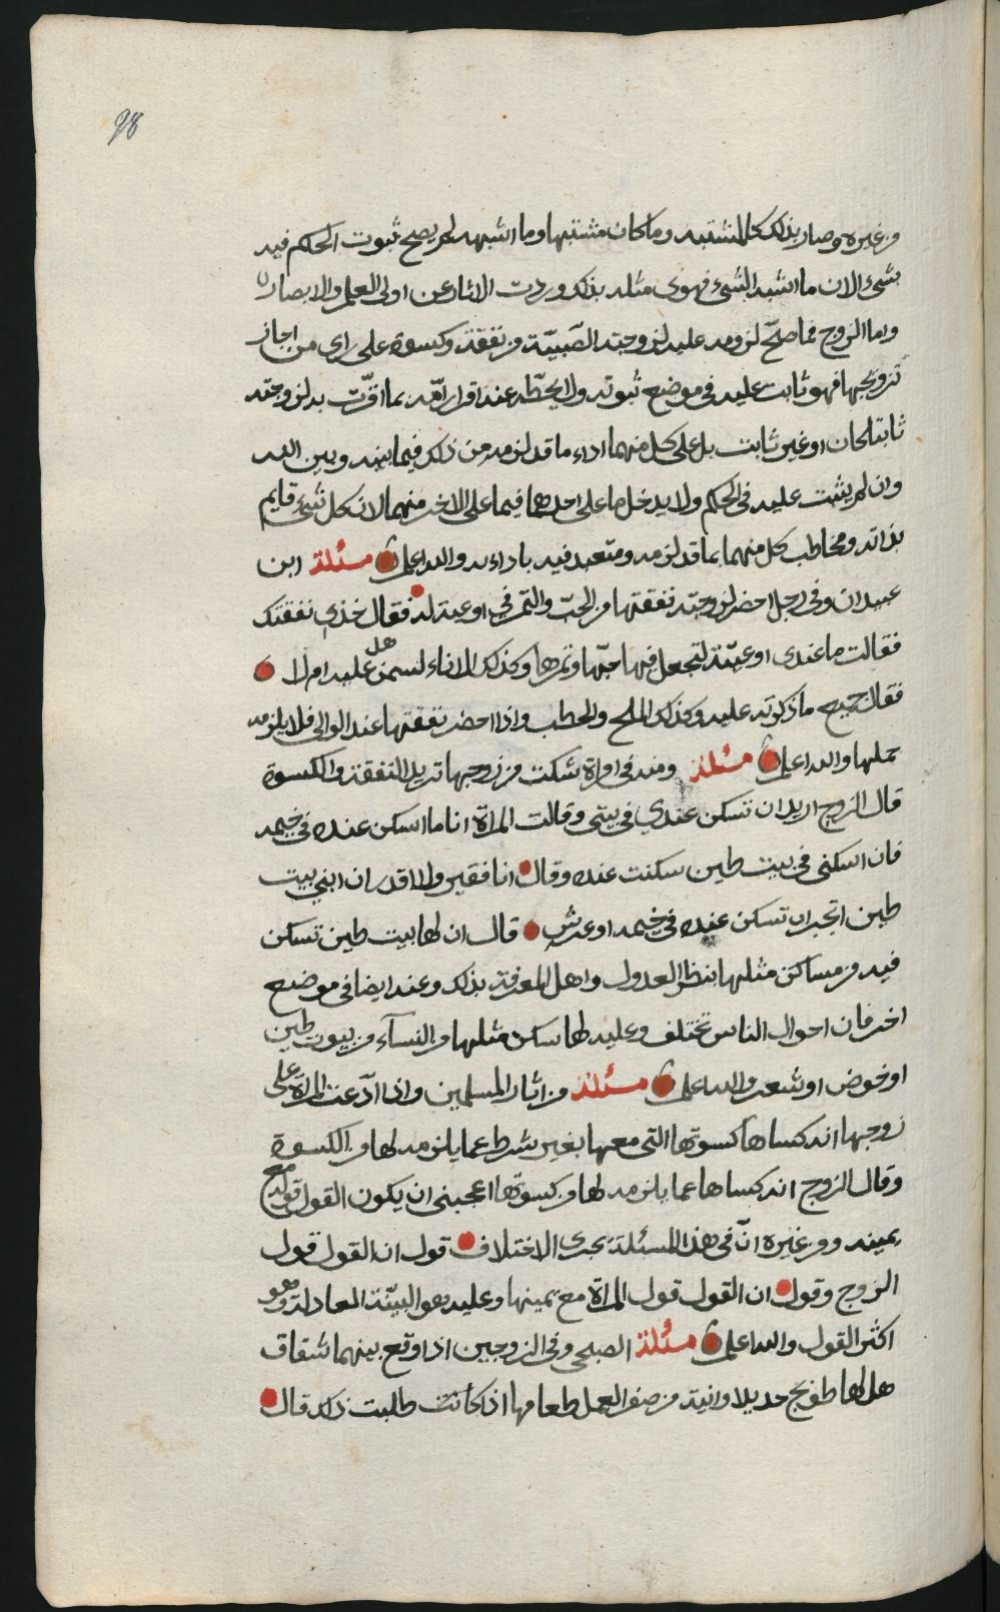 98
من غيره وصار بذلك كالمشتبه وما كان مشتبها وما اشبهه لم يصح ثبوت الحكم فيه
بشيء الا ان ما اشبه الشيء فهو في مثله بذلك وردت الاثار عن اولى العلم والابصار
واما الزوج فما صحّ لزومه عليه لزوجته الصبيّة من نفقة وكسوة على راي من اجاز
تزويجها فهو ثابت عليه في موضع ثبوته ولا يحطّه عنه اقرار امّه بما اقرّت به لزوجته
ثابتا كان او غير ثابت بل على كل منهما اداء ما قد لزمه من ذلك فيما بينه وبين الله
وان لم يثبت عليه في الحكم ولا يدخل ما على احدهما فيما على الاخر منهما لان كل شيء قايم
بذاته ومخاطب كل منهما بما قد لزمه ومتعبد فيه باداءه والله اعلم مسئلة ابن
عبيدان وفي رجل احضر لزوجته نفقتها من الحبّ والتمر في اوعية له فقال خذي نفقتك
فقالت ما عندى اوعيّة لتجعل فيها حبّها وتمرها وكذلك الاناء لسمن هل عليه ام لا
فقال جميع ما ذكرته عليه وكذلك الملح والحطب واذا احضر نفقتها عند الوالى فلا يلزمه
حملها والله اعلم مسئلة ومنه في امراة شكت من زوجها تريد النفقة والكسوة
قال الزوج اريد ان تسكن عندي في بيتى وقالت المراة انا ما اسكن عنده في خيمه
فان اسكنى في بيت طين سكنت عنده وقال انا فقير ولا اقدر ان ابني بيت
طين اتجبر ان تسكن عنده في خيمه او عرش قال ان لها بيت طين تسكن
فيه من مساكن مثلها بنظر العدول واهل المعرفة بذلك وعنه ايضا في موضع
اخر فان احوال الناس تختلف وعليه لها سكن مثلها من النسآء من بيوت طين
او خوص او شعر والله اعلم مسئلة من اثار المسلمين واذا ادّعت المراة على
زوجها انه كساها كسوتها التى معها بغير شرط عما يلزمه لها من الكسوة
وقال الزوج انه كساها عما يلزمه لها من كسوتها اعجبنى ان يكون القول قوله مع
يمينه ومن غيره انّ في هذا المسئلة يجرى الاختلاف قول ان القول قول
الزوج وقول ان القول قول المراة مع يمينها وعليه هو البيّنة العادلة وهو
اكثر القول والله اعلم مسئلة الصبحي وفي الزوجين اذا وقع بينهما شقاق
هل لها طوبج حديد وانية من صفر لعمل طعامها اذ كانت طلبت ذلك قال